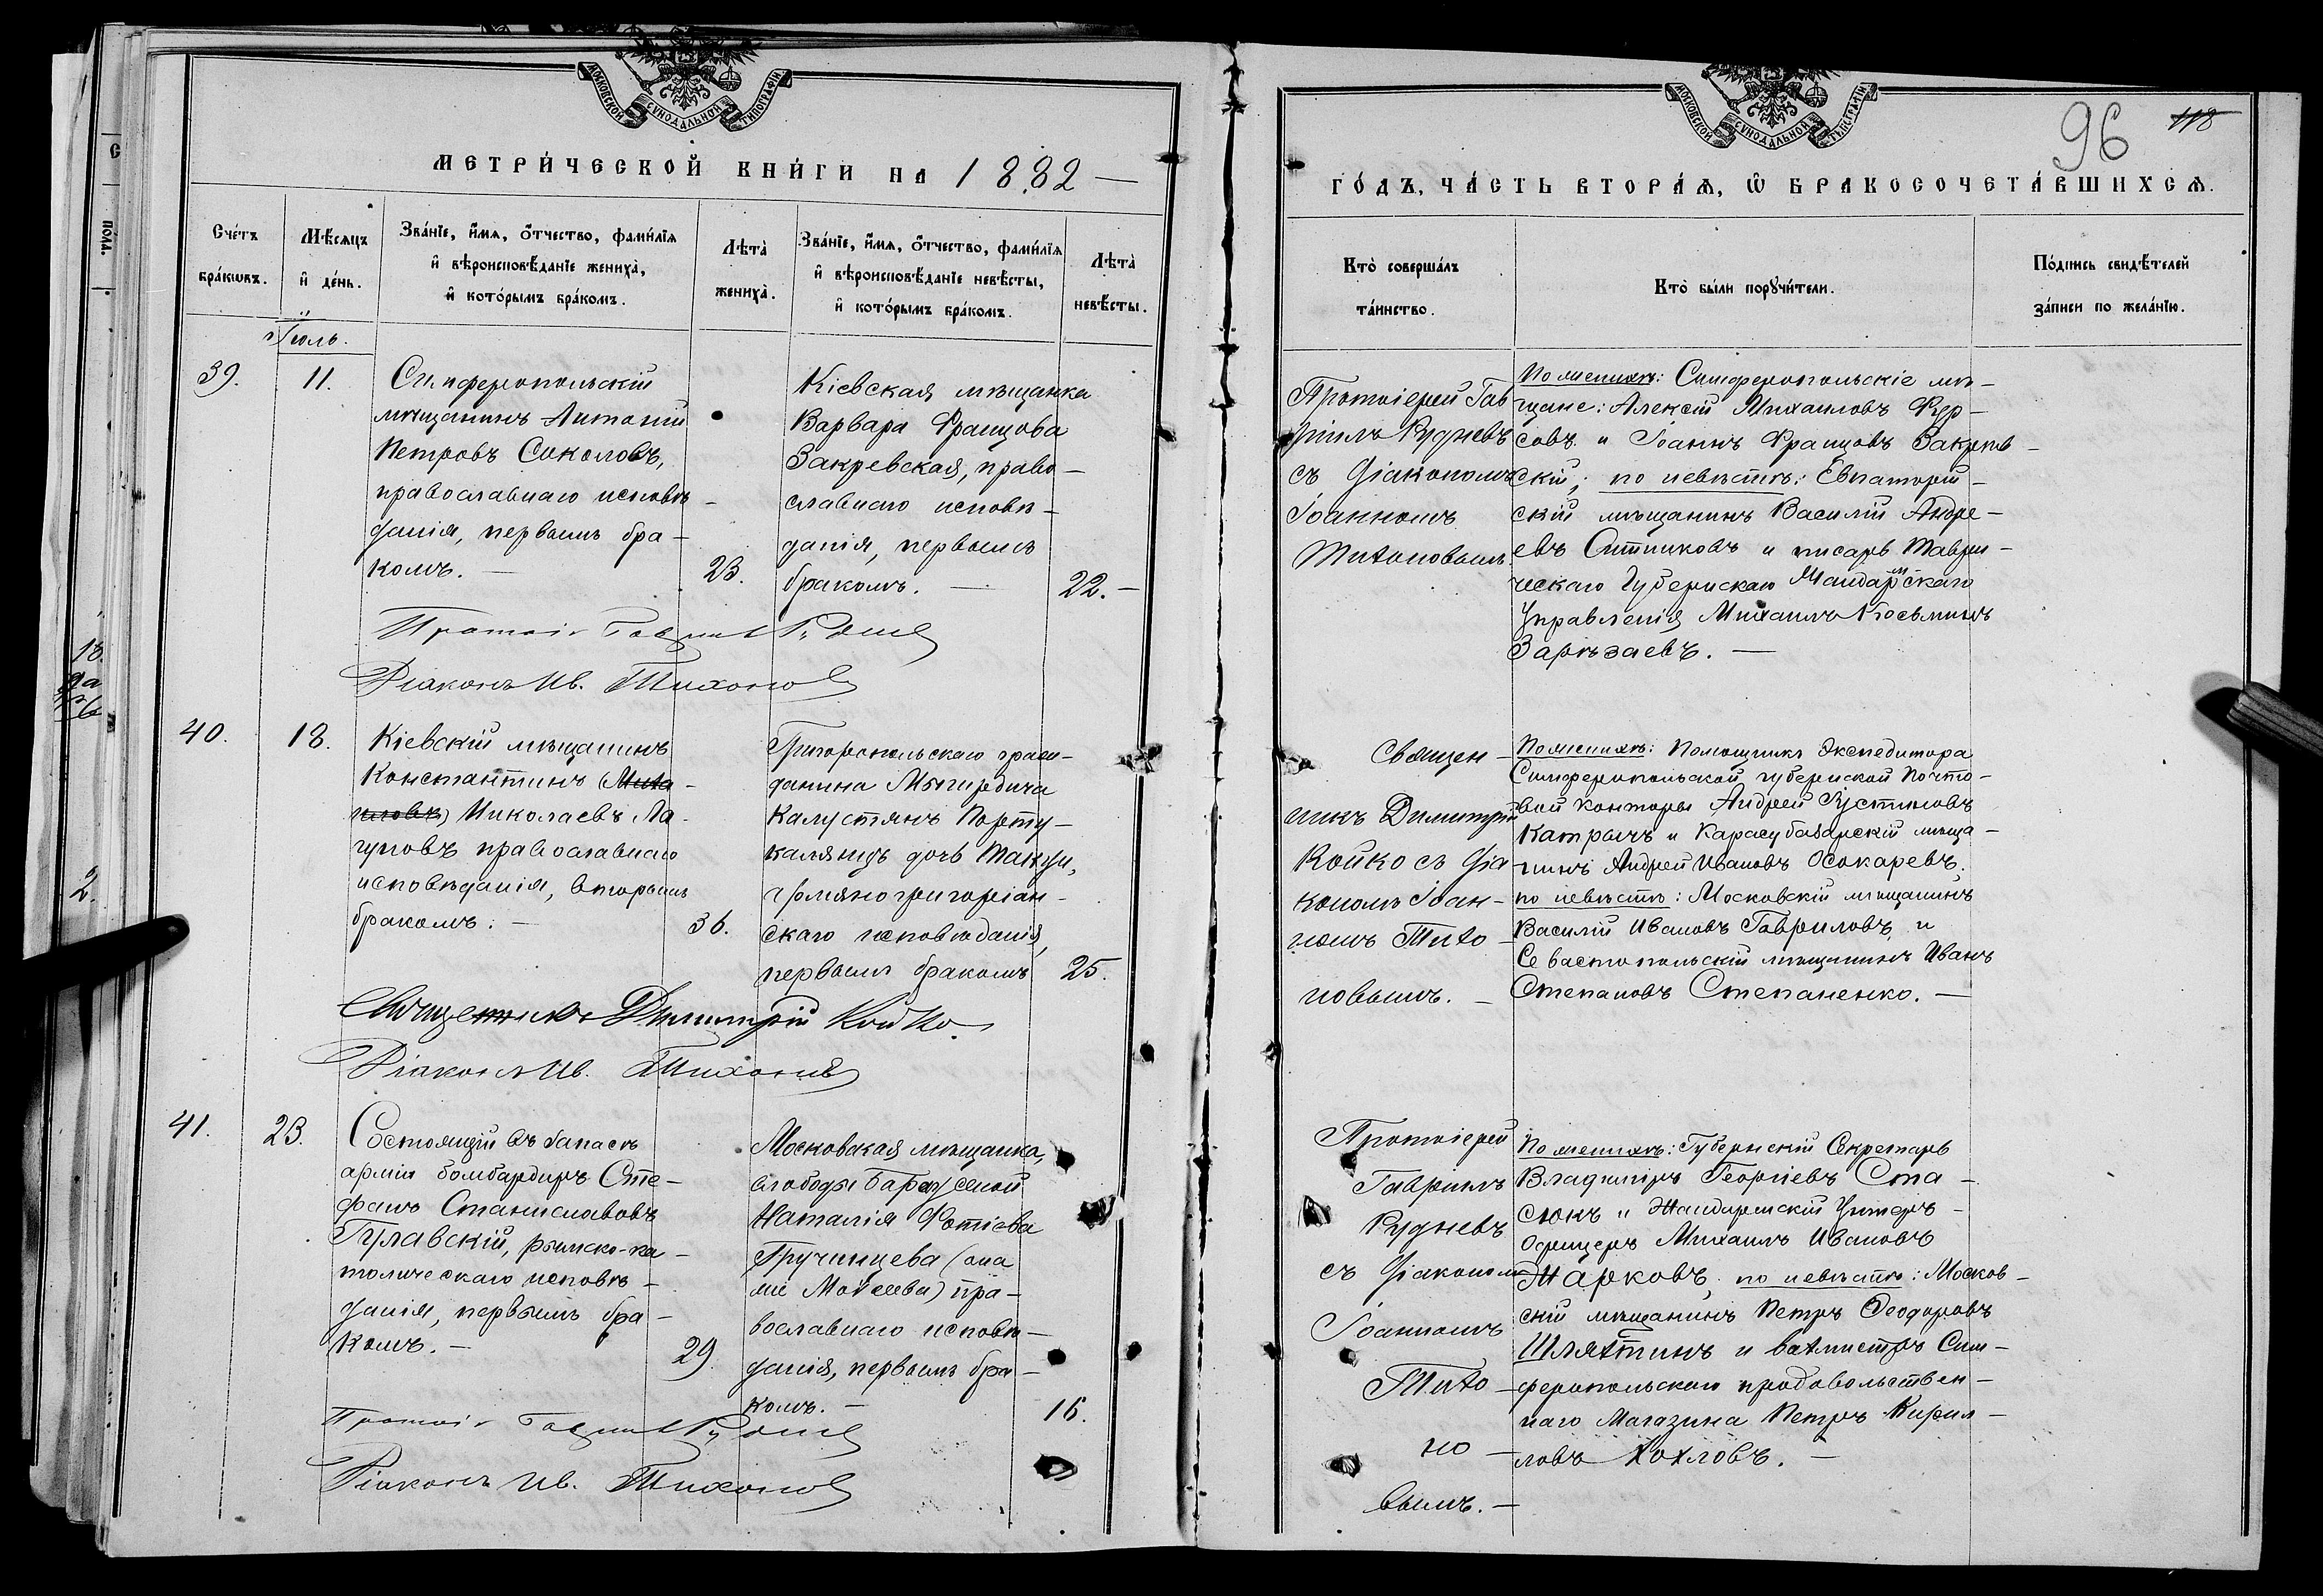 МОСКОВСКОЙ СѴНОДАЛЬНОЙ ТИПОГРАФІИ
МЕТРИ́ЧЕСКОЙ КНИ́ГИ НА 1882 —
Сче́тъ бра́кѡвъ.
Мѣ́сяцъ и҆ де́нь.
Зва́нїе, и҆́мя, ѻ҆́тчество, фами́лїя
и҆ вѣроисповѣ́данїе жениха̀,
и҆ кото́рымъ бра́комъ.
Лѣта̀ жениха̀.
Зва́нїе, и҆́мя, ѻ҆́тчество, фами́лїя
и҆ вѣроисповѣ́данїе невѣ́сты,
и҆ кото́рымъ бра́комъ.
Лѣта̀ невѣ́сты.
Іюль.
39.
11.
Симферопольскій
мѣщанинъ Антоній
Петровъ Соколовъ,
православнаго исповѣ-
данія, первымъ бра-
комъ. —
23.
Кіевская мѣщанка
Варвара Францова
Закревская, право-
славнаго исповѣ-
данія, первымъ
бракомъ. —
22. —
Діаконъ Ив. Тихоновъ
40.
18.
Кіевскій мѣщанинъ
Константинъ (Миха-
иловъ) Николаевъ Ла-
гуновъ православнаго
исповѣданія, вторымъ
бракомъ. —
36.
Григоріопольскаго граж-
данина Мкгирдича
Калустянъ Порту-
калянцъ дочь
армяногригоріан-
скаго исповѣданія,
первымъ бракомъ
25.
Священникъ Димитрій Койко.
Діаконъ Ив. Тихоновъ
41.
23.
Состоящій въ запасѣ
арміи бомбардиръ Сте-
фанъ Станиславовъ
Гулавскій, римско-ка-
толическаго исповѣ-
данія, первымъ бра-
комъ. —
29.
Московская мѣщанка,
слободы
Наталія Фотіева
Гручинцева (она
же Моѵсеева) пра-
вославнаго исповѣ-
данія, первымъ бра-
комъ. —
16.
Діаконъ Ив. Тихоновъ
МОСКОВСКОЙ СѴНОДАЛЬНОЙ ТИПОГРАФІИ
96 118
ГО́ДЪ, ЧА́СТЬ ВТОРА́Ѧ, Ѡ҆ БРАКОСОЧЕТА́ВШИХСѦ.
Кто̀ соверша́лъ
та́инство.
Кто̀ бы́ли порꙋчи́тели.
По́дпись свидѣ́телей
за́писи по жела́нїю.
Протоіерей Гав
ріилъ Рудневъ
съ Діакономъ
Іоанномъ
Тихоновымъ
По женихѣ: Симферопольскіе мѣ-
щане: Алексій Михаиловъ Фир-
совъ и Іоаннъ Францовъ Закрев-
скій; по невѣстѣ: Евпаторій-
скій мѣщанинъ Василій Андре-
евъ Ситниковъ и писарь Таври-
ческаго Губернскаго Жандармскаго
Управленія Михаилъ Косьминъ
Зарѣзаевъ. —
Священ-
никъ Димитрій
Койко съ Діа-
кономъ Іоан-
номъ Тихо-
новымъ. —
По женихѣ: Помощникъ Экспедитора
Симферопольской губернской почто-
вой конторы Андрей Іустиновъ
Катрычъ и Карасубазарскій мѣща-
нинъ Андрей Ивановъ Осокаревъ.
по невѣстѣ: Московскій мѣщанинъ
Василій Ивановъ Гавриловъ и
Севастопольскій мѣщанинъ Иванъ
Степановъ Степаненко. —
Протоіерей
Гавріилъ
Рудневъ
съ Діакономъ
Іоанномъ
Тихо-
но-
вымъ. —
По женихѣ: Губернскій Секретарь
Владиміръ Георгіевъ Ста-
сюкъ и Жандармскій Унтеръ-
Офицеръ Михаилъ Ивановъ
Жарковъ; по невѣстѣ: Москов-
скій мѣщанинъ Петръ Ѳеодоровъ
Шляхтинъ и вахмистръ Сим-
феропольскаго продовольствен-
наго магазина Петръ Кирил-
ловъ Хохловъ. —